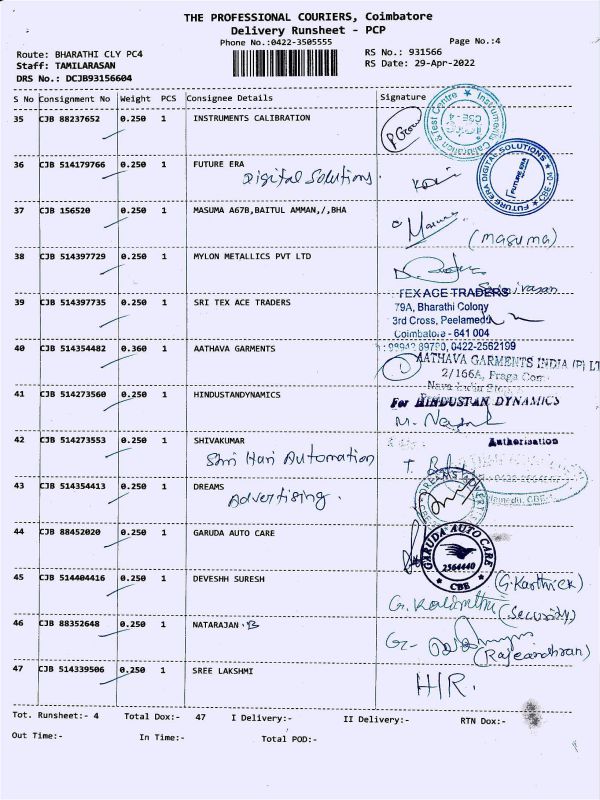 THE PROFESSIONAL COURIERS, Coimbatore
Delivery Runsheet - PCP
Phone No.:0422-3505555
Page No.:4
Route: BHARATHI CLY PC4
RS No.: 931566
Staff: TAMILARASAN
RS Date: 29-Apr-2022
DRS No.: DCJB93156604
S No Consignment No Weight PCS Consignee Details Signature
35 CJB 88237652 0.250 1 INSTRUMENTS CALIBRATION
Instruments Calibration & Test Centre
CBE-4
36 CJB 514179766 0.250 1 FUTURE ERA
Digital Solutions.
FUTURE ERA DIGITAL SOLUTIONS
FUTURE ERA
CBE - 04
37 CJB 156520 0.250 1 MASUMA A67B,BAITUL AMMAN,/,BHA
Masuma
(masuma)
38 CJB 514397729 0.250 1 MYLON METALLICS PVT LTD
Srinivasan
39 CJB 514397735 0.250 1 SRI TEX ACE TRADERS
TEX ACE TRADERS
79A, Bharathi Colony
3rd Cross, Peelamedu
Coimbatore - 641 004
0422-2562199
40 CJB 514354482 0.360 1 AATHAVA GARMENTS
AATHAVA GARMENTS INDIA (P) LT
2/166A, Fraga Com
41 CJB 514273560 0.250 1 HINDUSTANDYNAMICS
For HINDUSTAN DYNAMICS
Authorisation
42 CJB 514273553 0.250 1 SHIVAKUMAR
Shri Hari Automation
43 CJB 514354413 0.250 1 DREAMS
Advertising.
44 CJB 88452020 0.250 1 GARUDA AUTO CARE
GARUDA AUTO CARE
2564440
CBE
45 CJB 514404416 0.250 1 DEVESHH SURESH
(G.Karthick)
(Security)
46 CJB 88352648 0.250 1 NATARAJAN .B
(Rajeandhran)
47 CJB 514339506 0.250 1 SREE LAKSHMI
H/R.
Tot. Runsheet:- 4 Total Dox:- 47 I Delivery:- II Delivery:- RTN Dox:-
Out Time:- In Time:- Total POD:-